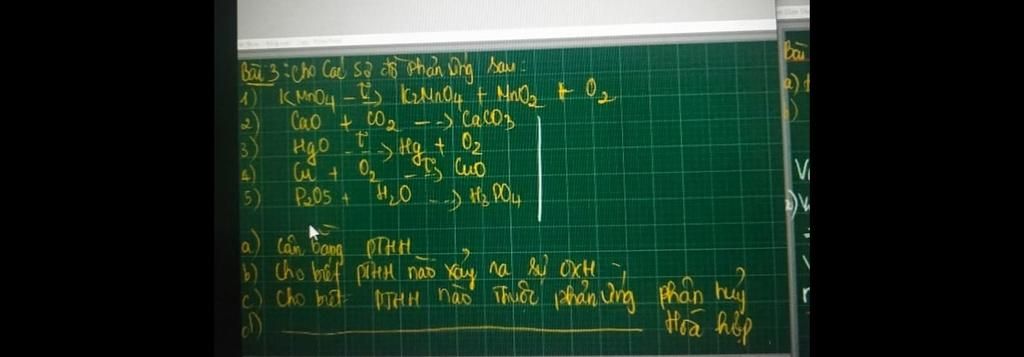 Bài 3: Cho Các sơ đồ phản ứng sau:
1) KMnO4 --t°--> K2MnO4 + MnO2 + O2
2) CaO + CO2 ---> CaCO3
3) HgO --t°--> Hg + O2
4) Cu + O2 --t°--> CuO
5) P2O5 + H2O ---> H3PO4
a) Cân bằng PTHH
b) Cho biết PTHH nào xảy ra sự OXH
c) Cho biết PTHH nào thuộc phản ứng phân hủy
d) ________ Hoá hợp
Bài
a)
b)
2)